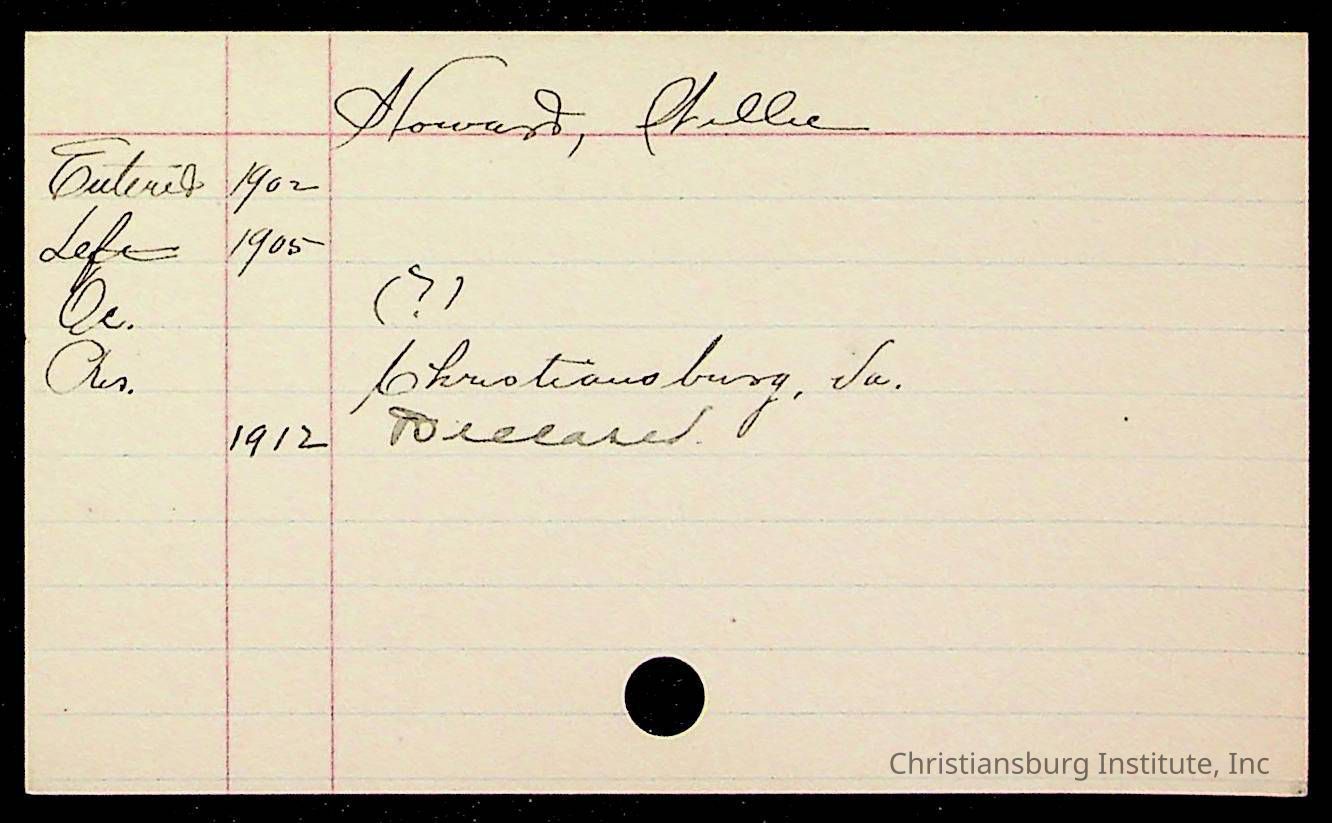 Howard, Willie
Entered 1902
Left 1905
Oc. (?)
Res. Christiansburg, Va.
1912 Deceased
Christiansburg Institute, Inc